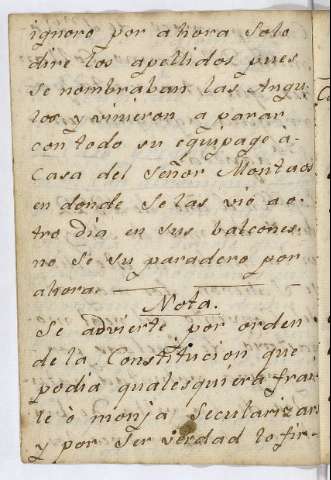 ignoro por ahora solo
dire los apellidos pues
se nombraban las Angu-
los, y vinieron a parar
con todo su equipage à
Casa del Señor Montaos
en donde se las viò a o-
tro dia en sus balcones.
no se su paradero por
ahora.
Nota.
Se advierte por orden
de la Constitucion que
podia qualesquiera frai-
le ò monja Secularizar
y por ser verdad lo fir-